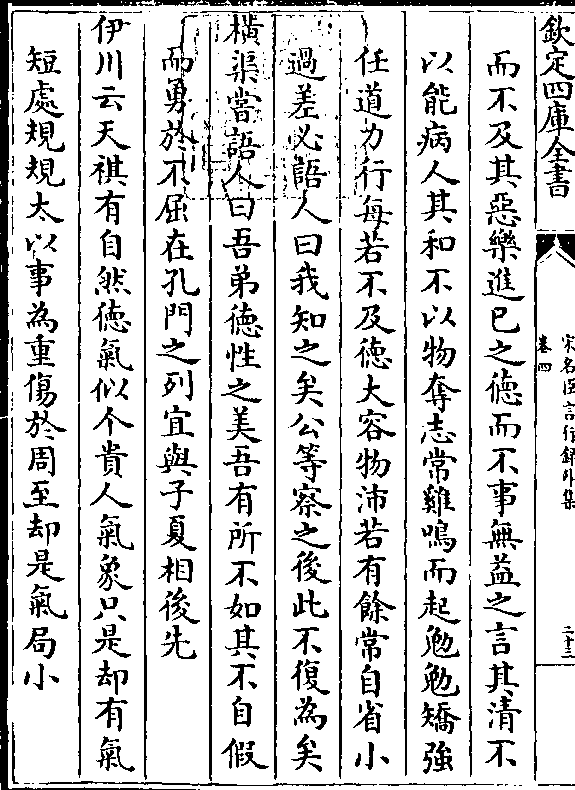 欽定四庫全書
宋名臣言行錄外集
卷四
二十三
而不及其惡樂進己之德而不事無益之言其清不
以能病人其和不以物奪志常雞鳴而起勉勉矯強
任道力行每若不及德大容物沛若有餘常自省小
過差必語人曰我知之矣公等察之後此不復為矣
橫渠嘗語人曰吾弟德性之美吾有所不如其不自假
而勇於不屈在孔門之列宜與子夏相後先
伊川云天祺有自然德氣似个貴人氣象只是却有氣
短處規規太以事為重傷於周至却是氣局小